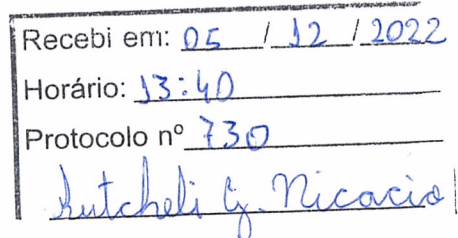 Recebi em: 05 / 12 / 2022
Horário: 13:40
Protocolo nº 730
G. Nicacio